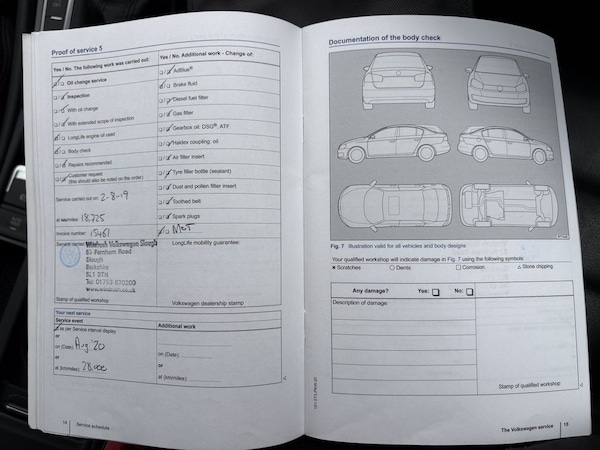 Proof of service 5
Yes / No. The following work was carried out:
Oil change service
Inspection
With oil change
With extended scope of inspection
LongLife engine oil used
Body check
Repairs recommended
Customer request
(this should also be noted on the order)
Service carried out on: 2-8-19
at km/miles: 18,725
Invoice number: 15461
Service carried
Windrush Volkswagen Slough
57 Farnham Road
Slough
Berkshire
SL1 3TN
Tel: 01753 870200
www.windrush.co.uk
Stamp of qualified workshop
Yes / No. Additional work - Change of:
AdBlue®
Brake fluid
Diesel fuel filter
Gas filter
Gearbox oil: DSG®, ATF
Haldex coupling: oil
Air filter insert
Tyre filler bottle (sealant)
Dust and pollen filter insert
Toothed belt
Spark plugs
MOT
LongLife mobility guarantee:
Volkswagen dealership stamp
Your next service
Service event
as per Service interval display
or
on (Date) Aug '20
or
at (km/miles) 28,000
Additional work
on (Date)
or
at (km/miles)
14
Service schedule
Documentation of the body check
Fig. 7 Illustration valid for all vehicles and body designs
Your qualified workshop will indicate damage in Fig. 7 using the following symbols:
× Scratches ○ Dents □ Corrosion △ Stone chipping
Any damage? Yes: □ No: □
Description of damage:
Stamp of qualified workshop:
The Volkswagen service
15